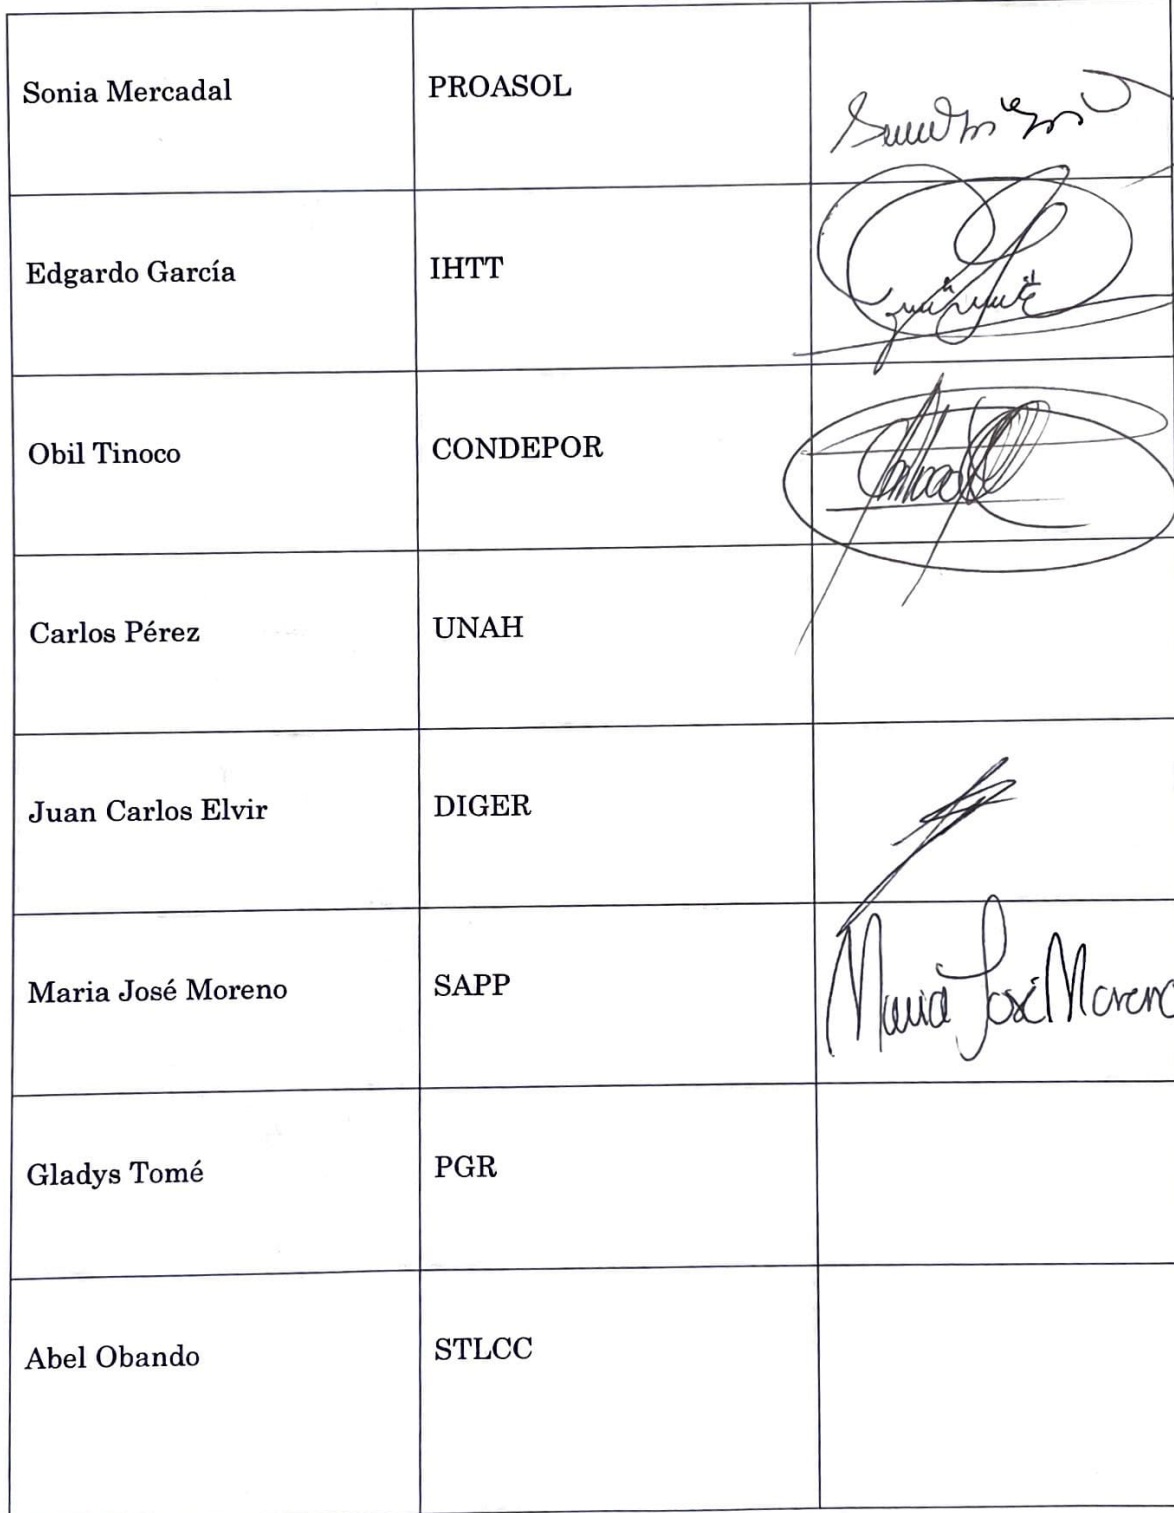 Sonia Mercadal
PROASOL
Edgardo García
IHTT
Obil Tinoco
CONDEPOR
Carlos Pérez
UNAH
Juan Carlos Elvir
DIGER
Maria José Moreno
SAPP
Maria José Moreno
Gladys Tomé
PGR
Abel Obando
STLCC